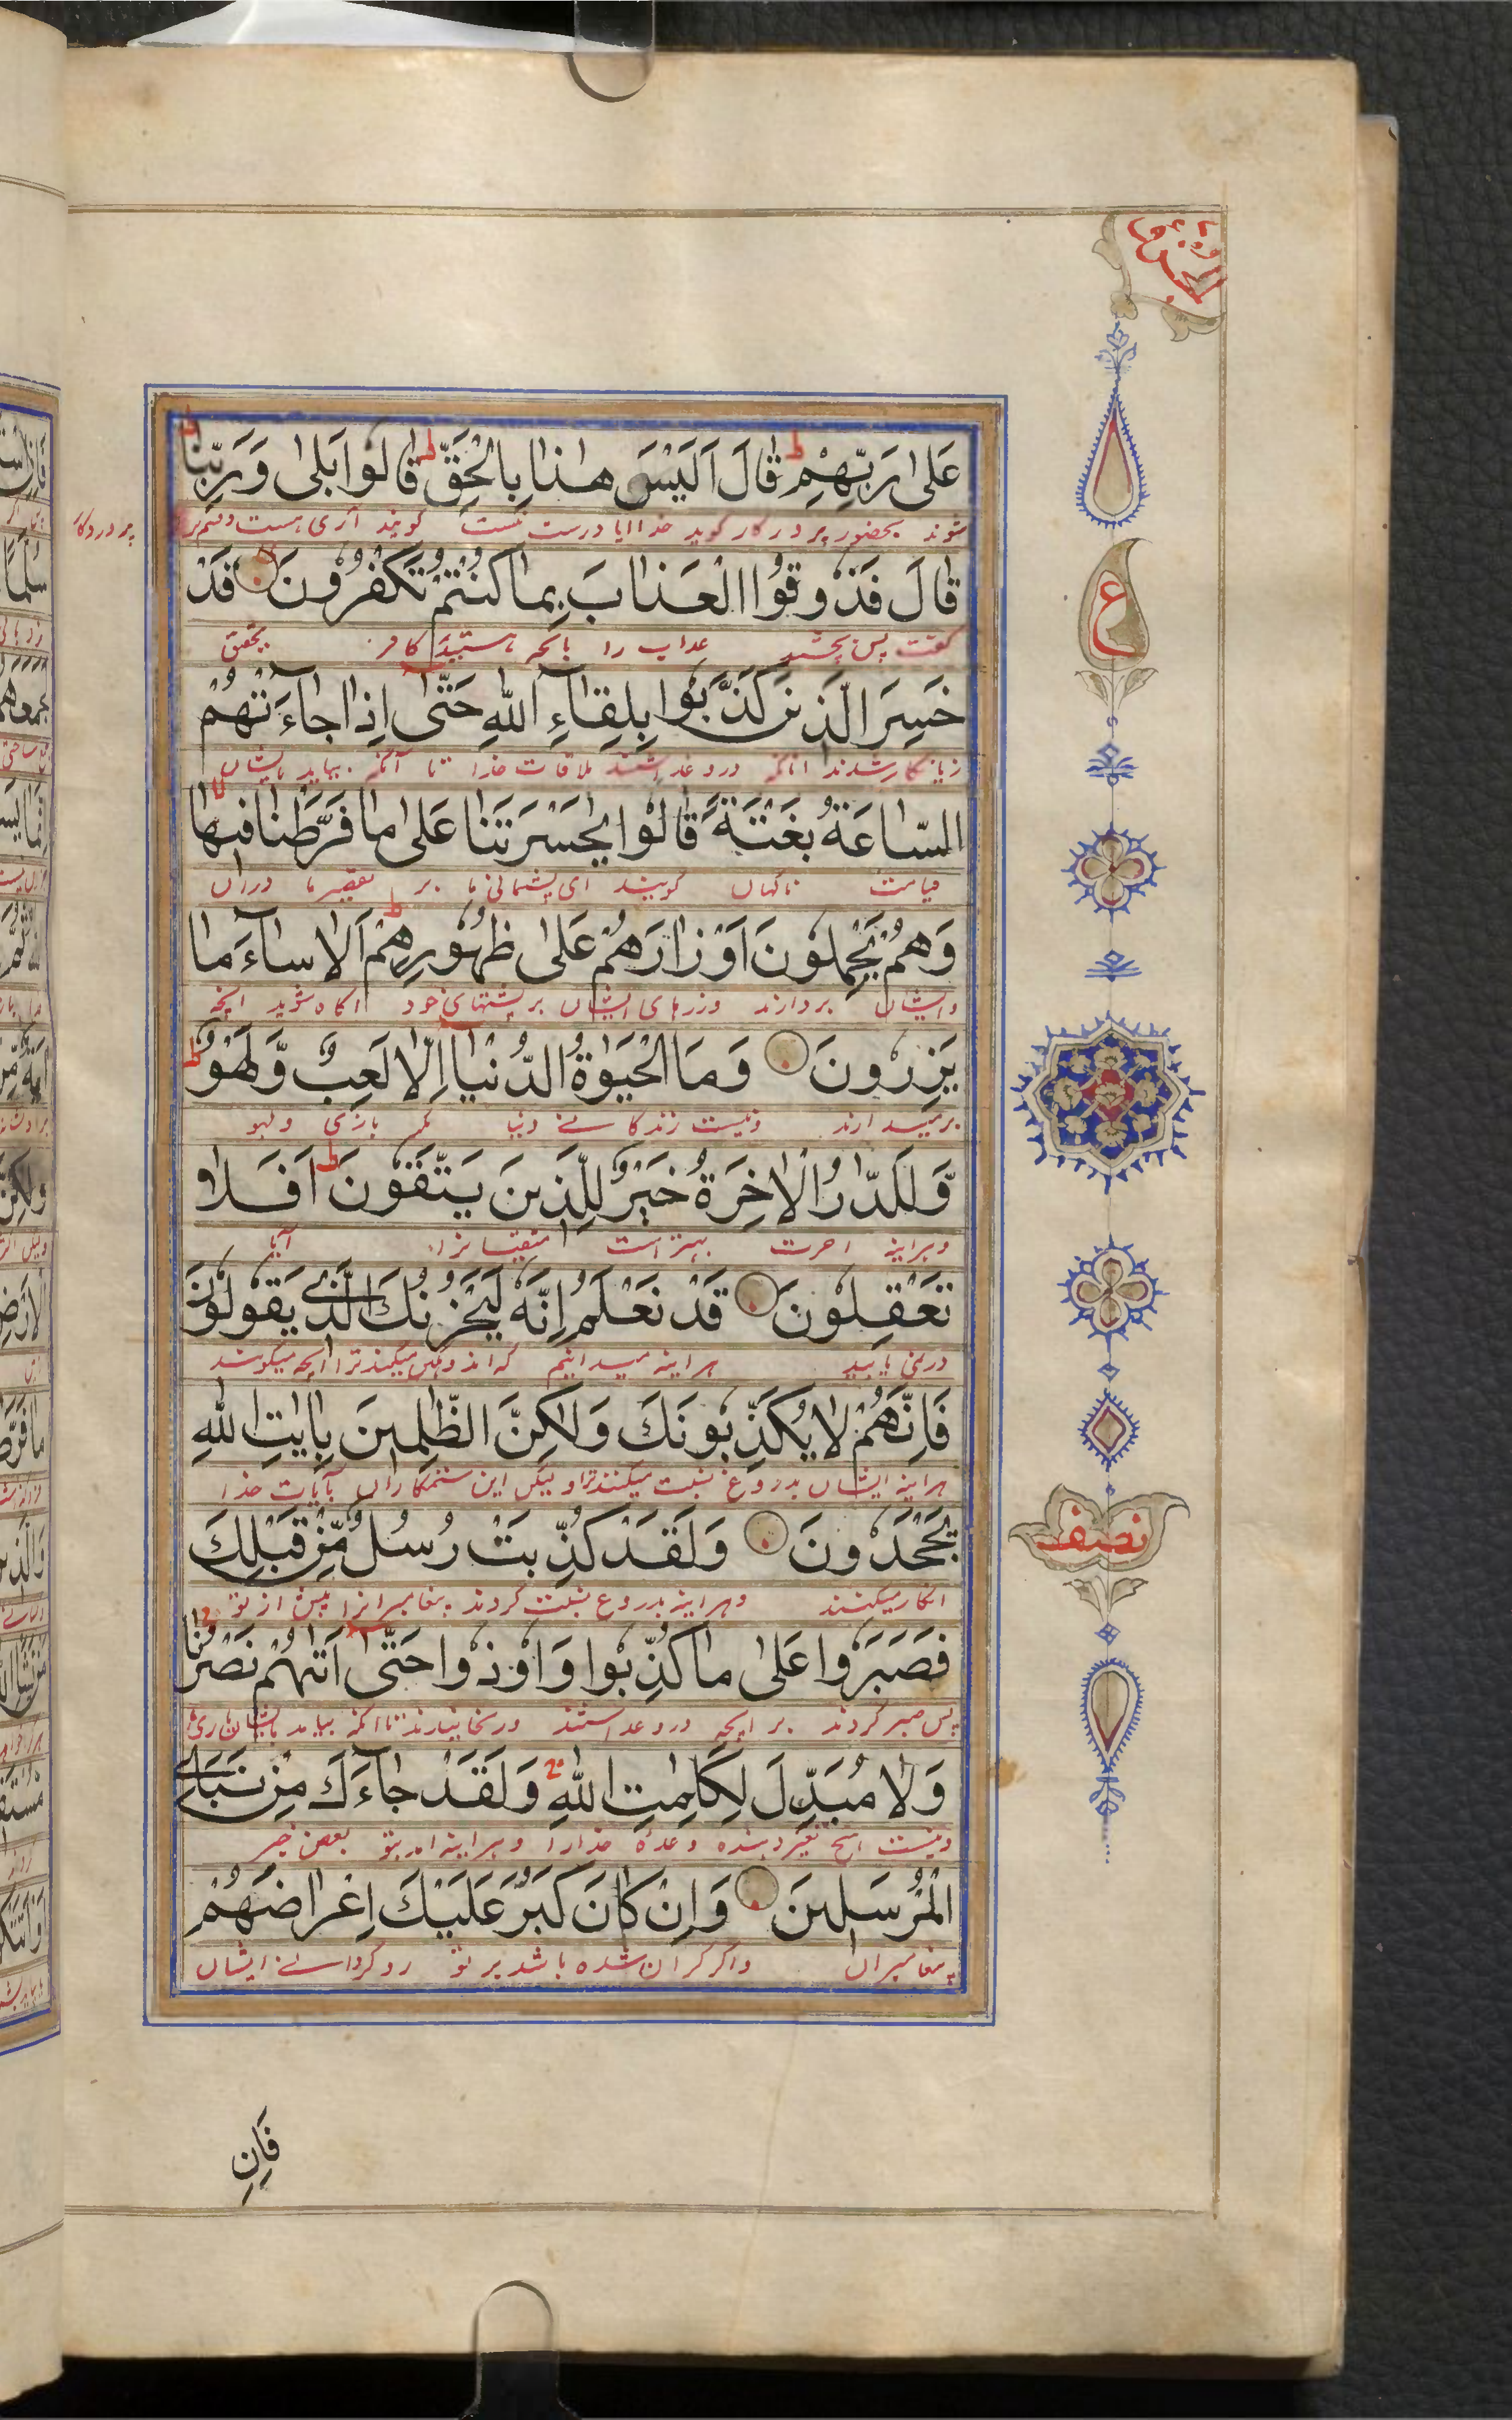 الجزو
عَلٰى رَبِّهِمْ ط قَالَ اَلَيْسَ هٰذَا بِالْحَقِّ ط قَالُوا بَلٰى وَرَبِّنَا ط
شوند بحضور پروردکار کوید خدا ایا درست نیست کویند آری هست قسم بر پروردکار
قَالَ فَذُوقُوا الْعَذَابَ بِمَا كُنْتُمْ تَكْفُرُونَ قَدْ
کفت پس بچشید عذاب را بانکه هستید کافر بتحقیق
خَسِرَ الَّذِينَ كَذَّبُوا بِلِقَآءِ اللّٰهِ حَتّٰى اِذَا جَآءَتْهُمُ
زیانکار شدند انانکه دروغ داشتند ملاقات خدا تا آنکه بیاید بایشان
السَّاعَةُ بَغْتَةً قَالُوا يٰحَسْرَتَنَا عَلٰى مَا فَرَّطْنَا فِيهَا
قیامت ناکهان کویند ای پشیمانی ما بر تقصیر ما دران
وَهُمْ يَحْمِلُونَ اَوْزَارَهُمْ عَلٰى ظُهُورِهِمْ ط اَلَا سَآءَ مَا
وایشان بردارند وزرهای ایشان بر پشتهای خود اکاه شوید انچه
يَزِرُونَ وَمَا الْحَيٰوةُ الدُّنْيَا اِلَّا لَعِبٌ وَّلَهْوٌ ط
برمیدارند ونیست زندکانے دنیا مکر بازی ولهو
وَّلَلدَّارُ الْاٰخِرَةُ خَيْرٌ لِّلَّذِينَ يَتَّقُونَ ط اَفَلَا
وهراینه اخرت بهتر است متقیانرا آیا
تَعْقِلُونَ قَدْ نَعْلَمُ اِنَّهُ لَيَحْزُنُكَ الَّذِي يَقُولُونَ
درنمی یابید هراینه میدانیم که اندوهکین میکند ترا انچه میکویند
فَاِنَّهُمْ لَا يُكَذِّبُونَكَ وَلٰكِنَّ الظّٰلِمِينَ بِاٰيٰتِ اللّٰهِ
هراینه ایشان بدروغ نسبت میکنند ترا و لیکن این ستمکاران بآیات خدا
يَجْحَدُونَ وَلَقَدْ كُذِّبَتْ رُسُلٌ مِّنْ قَبْلِكَ
انکار میکنند وهراینه بدروغ نسبت کردند پیغامبرانرا پیش از تو
فَصَبَرُوا عَلٰى مَا كُذِّبُوا وَاُوذُوا حَتّٰى اَتٰهُمْ نَصْرُنَا
پس صبر کردند بر انچه دروغ داشتند ورنجانیدند تا انکه بیامد بایشان یاری
وَلَا مُبَدِّلَ لِكَلِمٰتِ اللّٰهِ وَلَقَدْ جَآءَكَ مِنْ نَبَاِي
ونیست هیچ تغیر دهنده وعده خدا را وهراینه امد بتو بعض خبر
الْمُرْسَلِينَ وَاِنْ كَانَ كَبُرَ عَلَيْكَ اِعْرَاضُهُمْ
پیغامبران واکر کران شده باشد بر تو روکردانے ایشان
ع
نصف
فَاِنِ